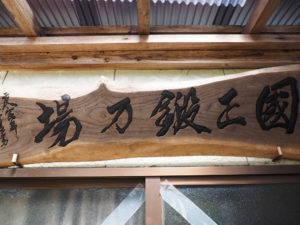 國正鍛刀場